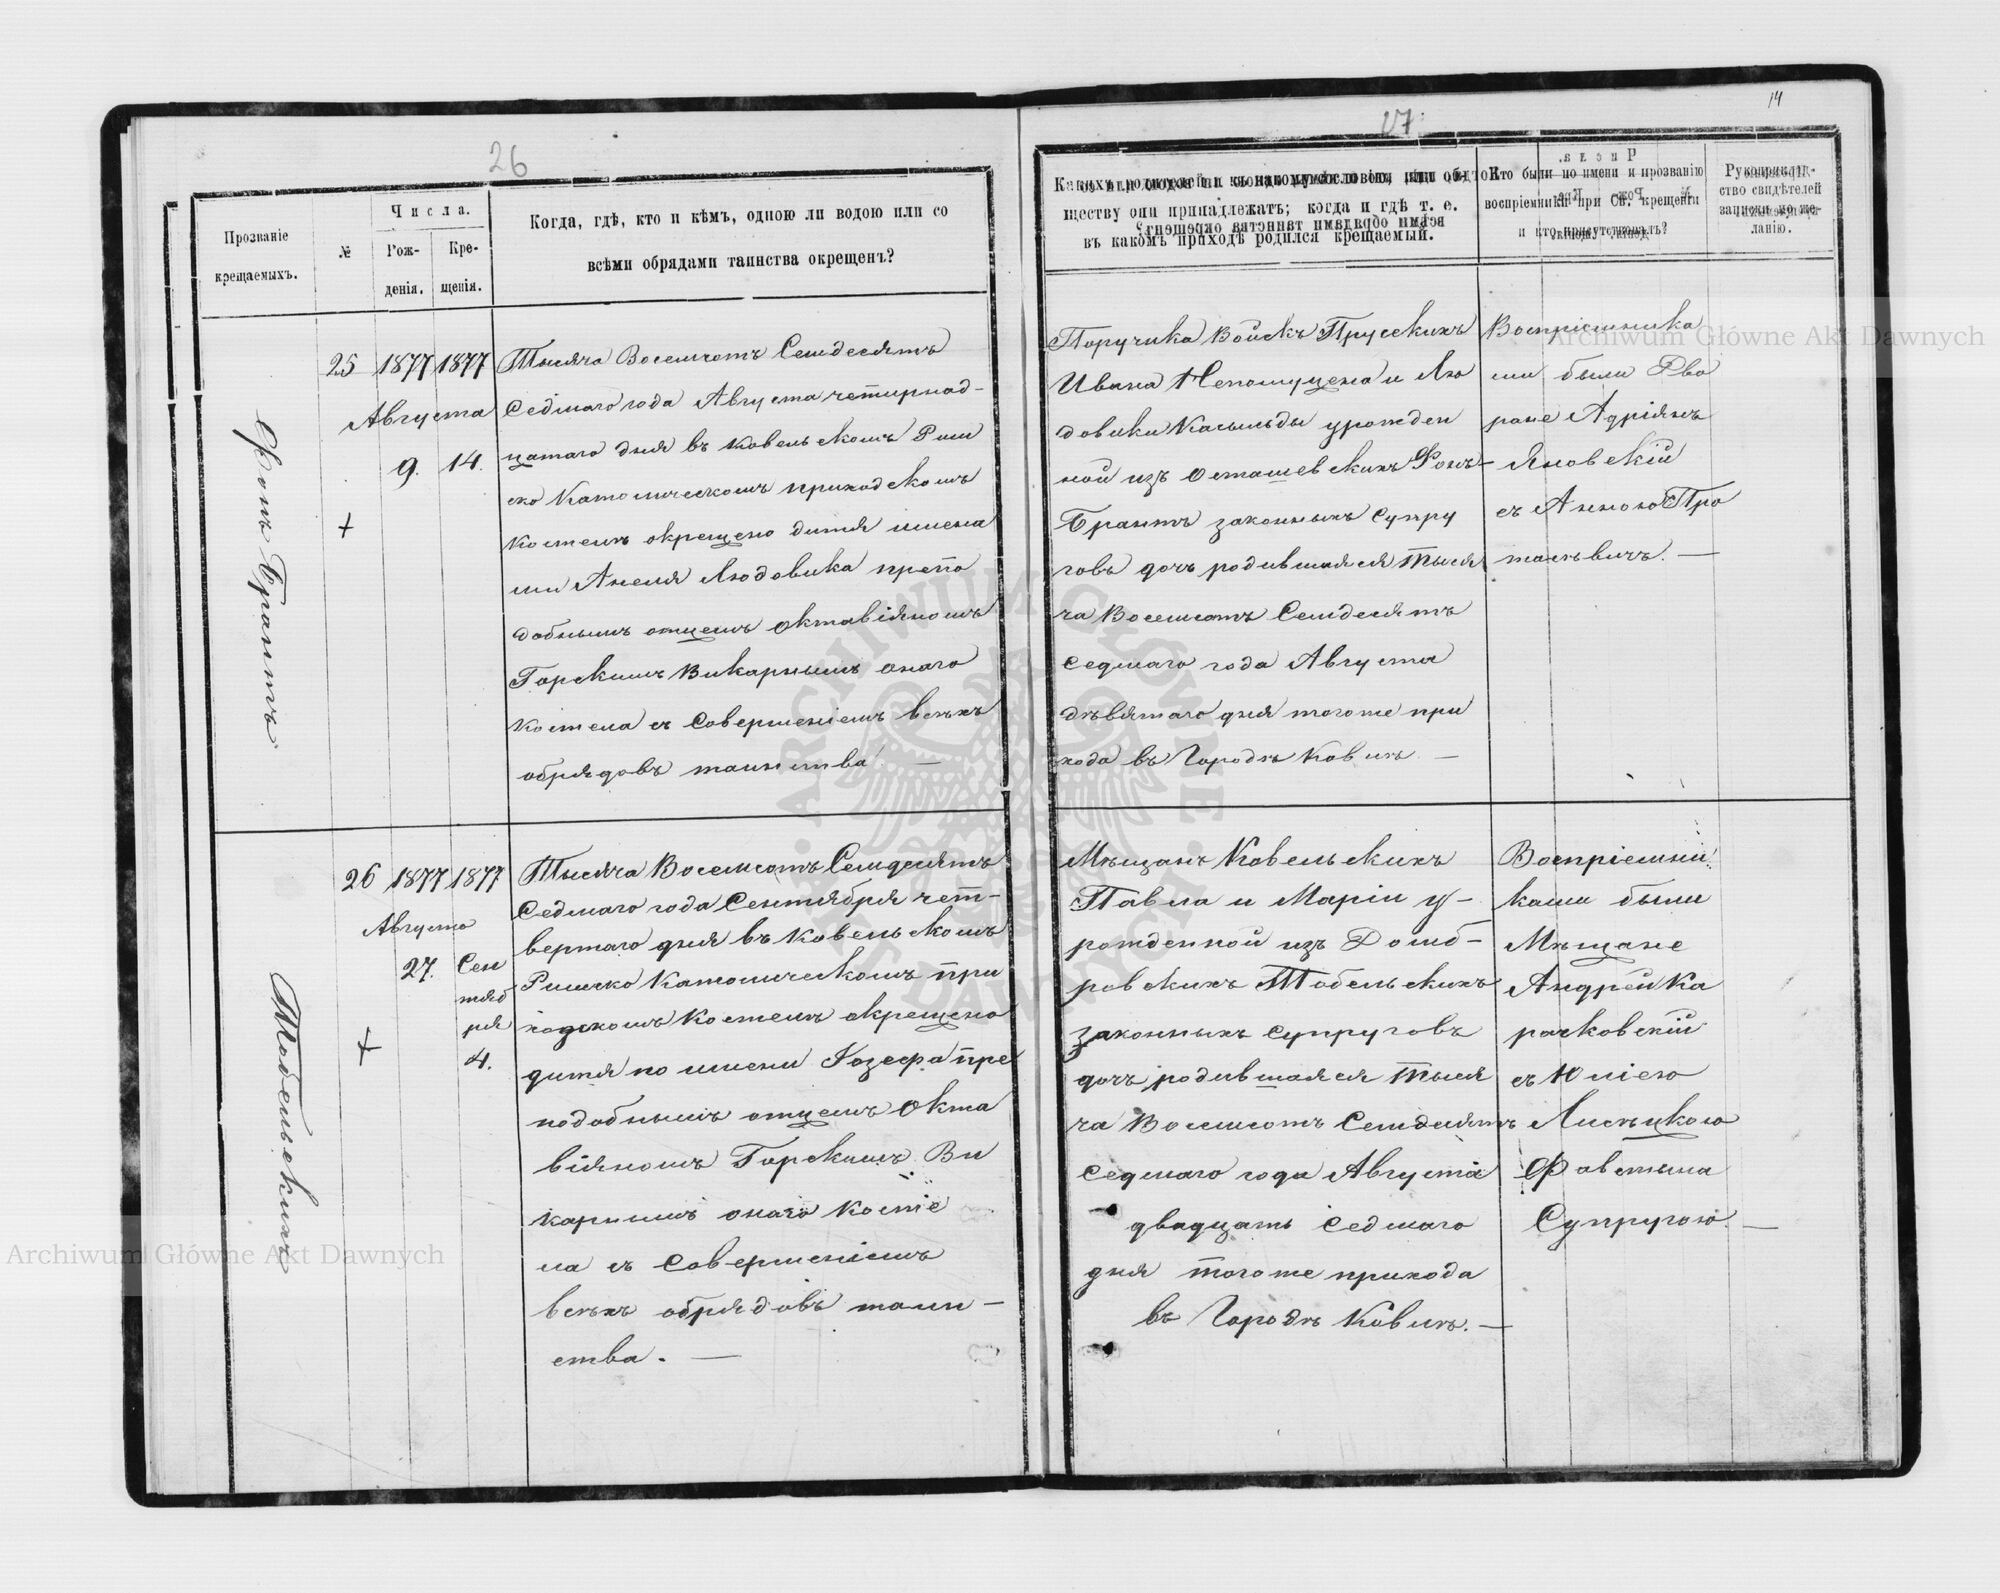 26
Прозваніе
крещаемыхъ.
№
Числа.
Рож-
денія.
Кре-
щенія.
Когда, гдѣ, кто и кѣмъ, одною ли водою или со
всѣми обрядами таинства окрещенъ?
Фонъ Брантъ
25
1877 1877
Августа
9. 14.
Тысяча Восемсотъ Семдесятъ
Седмаго года Августа четырнад-
цатаго дня въ Ковельскомъ Рим
ско Католическомъ приходскомъ
Костелѣ окрещено дитя имена
ми Анеля Людовика препо
добнымъ отцемъ Октавіяномъ
Горскимъ Викарнымъ онаго
Костела съ Совершеніемъ всѣхъ
обрядовъ таинства. —
Тобельскихъ
26
1877 1877
Августа
27.
Сен
тяб
ря
4.
Тысяча Восемсотъ Семдесятъ
Седмаго года Сентября чет-
вертаго дня въ Ковельскомъ
Римско Католическомъ при
ходскомъ Костелѣ окрещено
дитя по имени Іозефа пре
подобнымъ отцемъ Окта
віяномъ Горскимъ Ви
карнымъ онаго Косте
ла съ Совершеніемъ
всѣхъ обрядовъ таин-
ства. —
14
27
ществу они принадлежатъ; когда и гдѣ т. е.
въ какомъ приходѣ родился крещаемый.
Кто были по имени и прозванію
воспріемники при Св. крещеніи
и кто присутствовалъ?
Рукоприклад-
ство свидѣтелей
записки по же-
ланію.
Поручика Войскъ Прусскихъ
Ивана Непомуцена и Лю
довики Касильды урожден
ной изъ Осташевскихъ Фонъ-
Брантъ законныхъ Супру
говъ дочь родившаяся Тыся
ча Восемсотъ Семдесятъ
Седмаго года Августа
девятаго дня тогоже при
хода въ Городѣ Ковлѣ —
Воспріемника
ми были Дво
ране Адріянъ
Яновскій
съ Анною Про
тасѣвичъ. —
Мѣщанъ Ковельскихъ
Павла и Маріи у-
рожденной изъ Домб-
ровскихъ Тобельскихъ
законныхъ супруговъ
дочь родившаяся Тыся
ча Восемсотъ Семдесятъ
Седмаго года Августа
двадцать седмаго
дня тогоже прихода
въ Городѣ Ковлѣ. —
Воспріемни
ками были
Мѣщане
Андрей Ка
рачковскій
съ Юліею
Лисѣцкою
Фавстына
Супругою. —
Archiwum Główne Akt Dawnych
Archiwum Główne Akt Dawnych